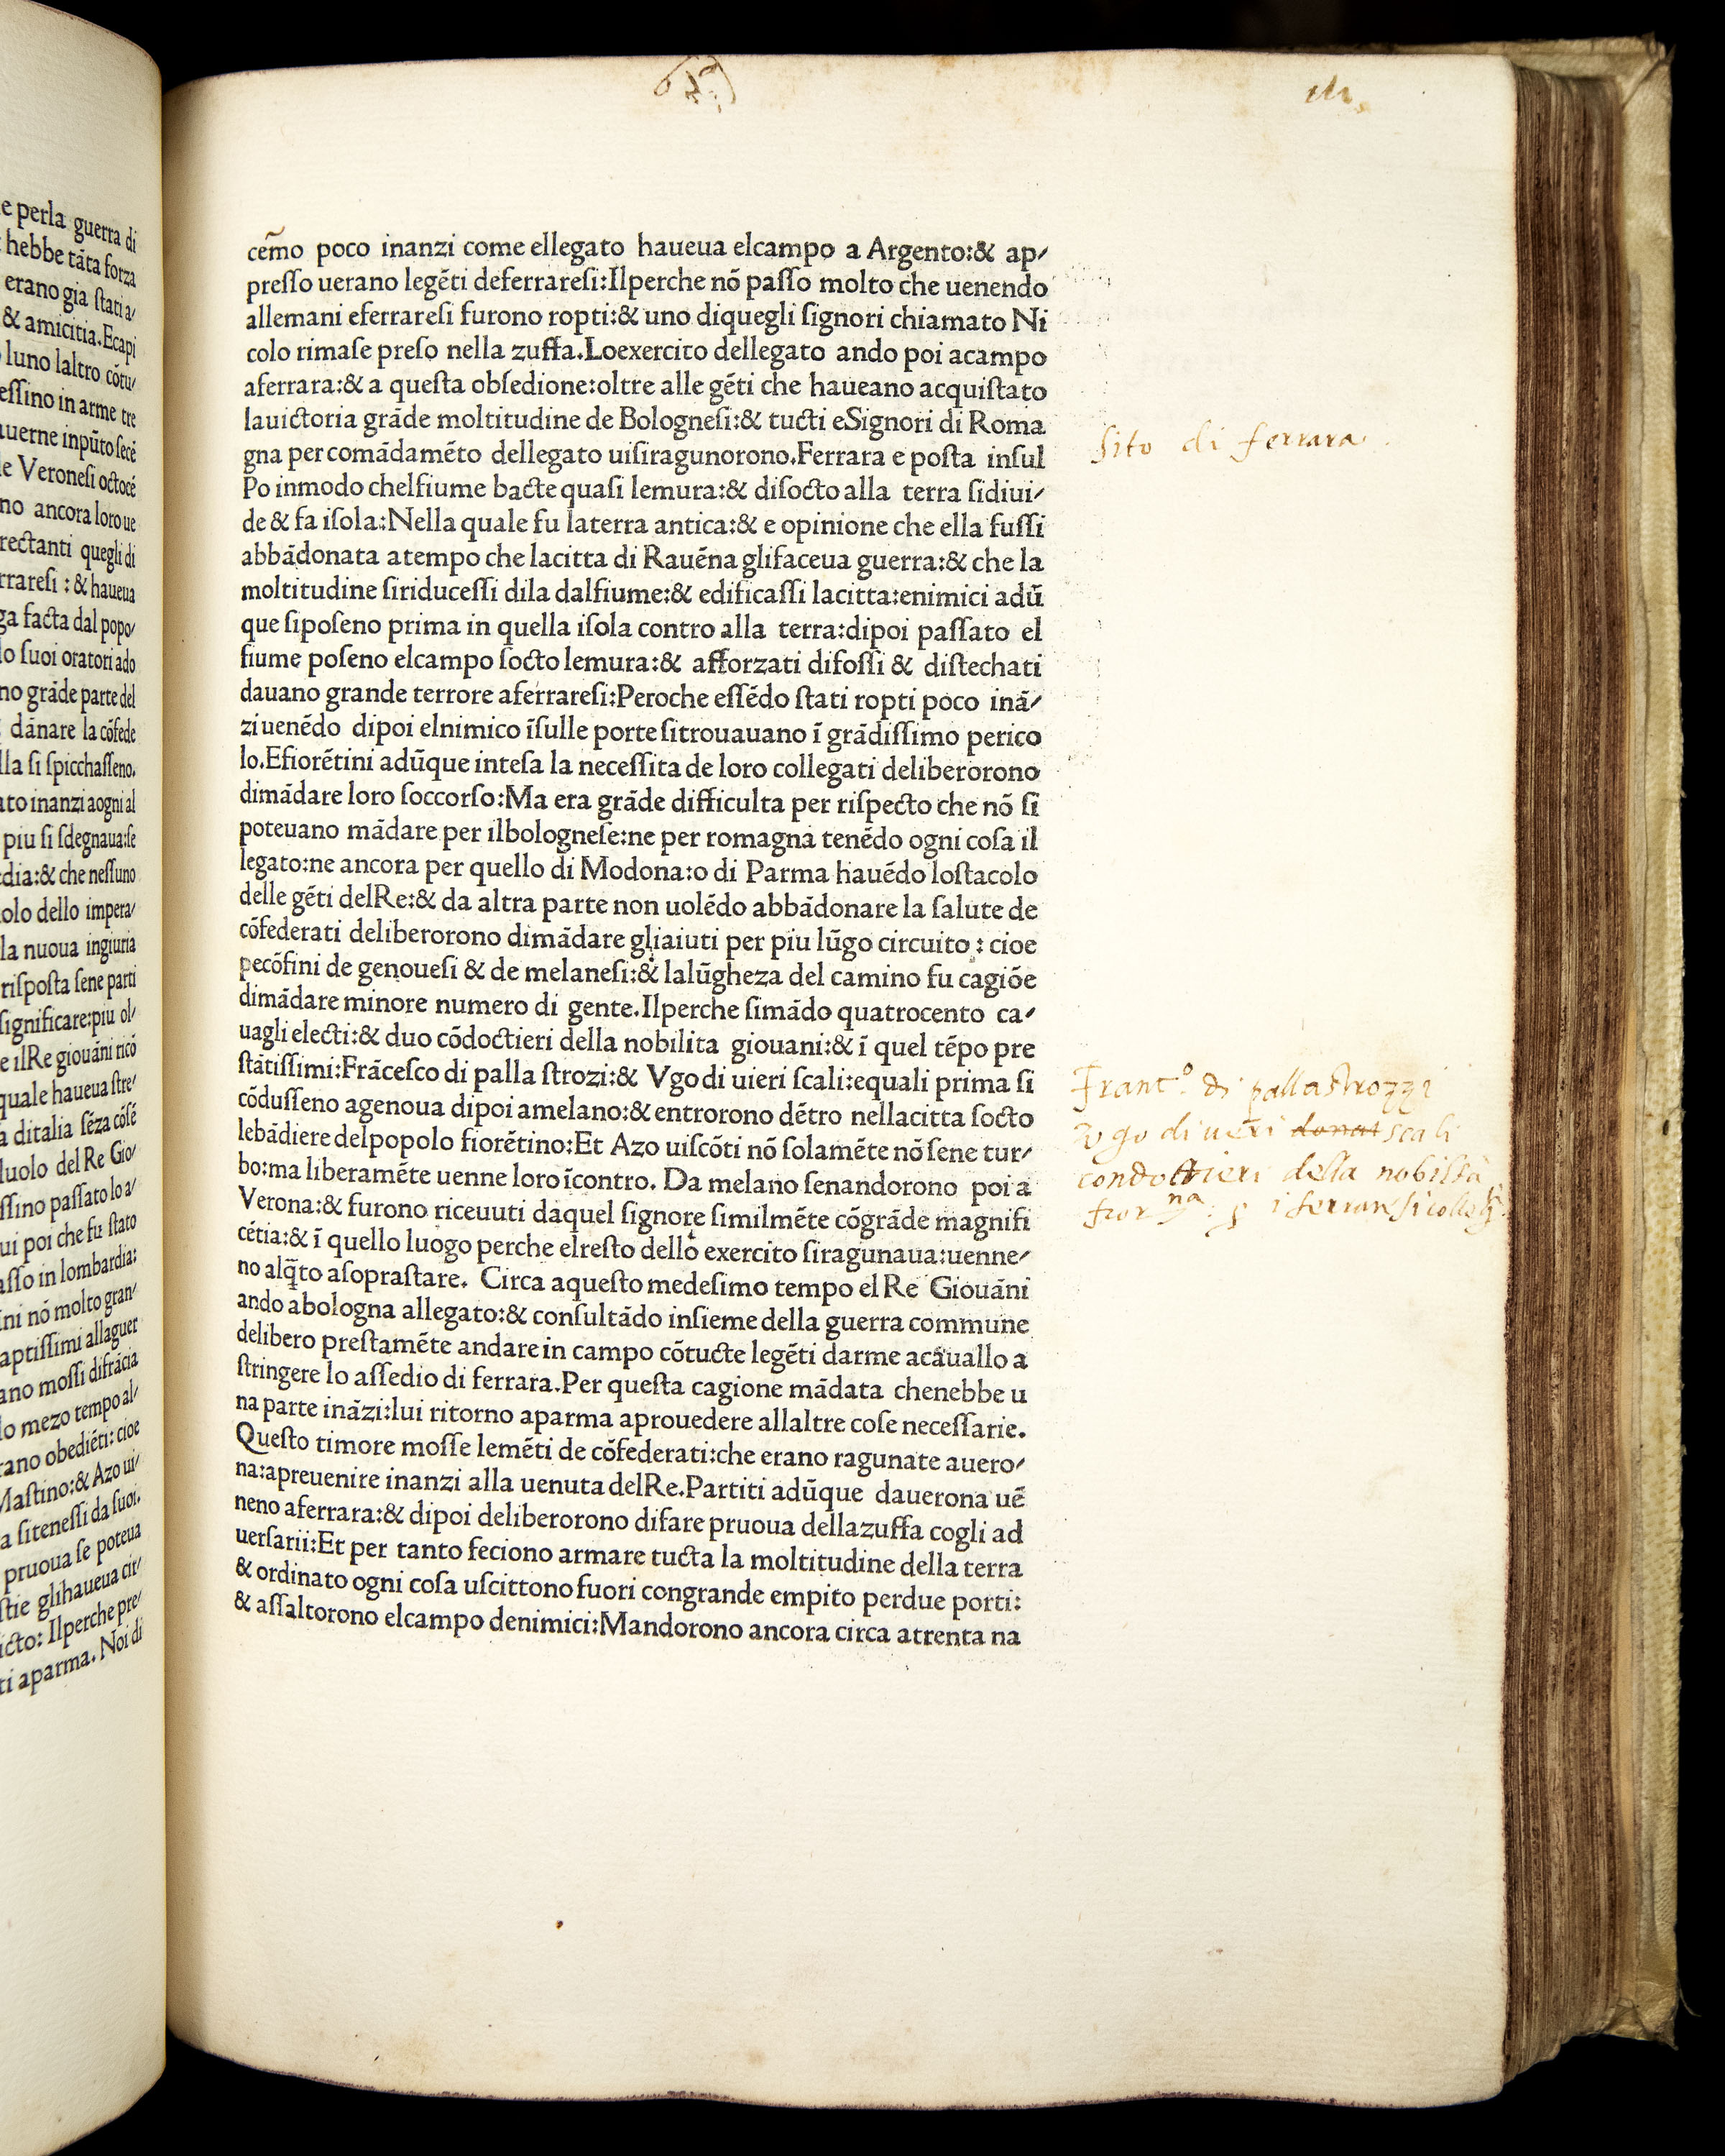 e perla guerra di
hebbe tãta forza
erano gia ſtati a/
& amicitia.Ecapi
luno laltro cõtu/
eſſino in arme tre
uerne inpũto ſecẽ
e Veroneſi octocẽ
no ancora loro ue
rectanti quegli di
rrareſi : & haueua
ga facta dal popo/
lo ſuoi oratori ado
no grãde parte del
dãnare la cõfede
lla ſi ſpicchaſſeno.
ato inanzi aogni al
piu ſi ſdegnaua:ſe
dia:& che neſſuno
olo dello impera/
la nuoua ingiuria
riſpoſta ſene parti
ſignificare:piu ol/
e ilRe giouãni ricõ
quale haueua ſtre/
a ditalia ſẽza cõſẽ
luolo del Re Gio/
ſſino paſſato lo a/
ui poi che fu ſtato
aſſo in lombardia:
ini nõ molto gran/
aptiſſimi allaguer
ano moſſi difrãcia
lo mezo tempo al/
rano obediẽti: cioe
Maſtino:& Azo ui/
a ſiteneſſi da ſuoi.
pruoua ſe poteua
ſtie glihaueua cir/
icto: Ilperche pre/
ti aparma. Noi di
cẽmo poco inanzi come ellegato haueua elcampo a Argento:& ap/
preſſo uerano legẽti deferrareſi:Ilperche nõ paſſo molto che uenendo
allemani eferrareſi furono ropti:& uno diquegli ſignori chiamato Ni
colo rimaſe preſo nella zuffa.Loexercito dellegato ando poi acampo
aferrara:& a queſta obſedione:oltre alle gẽti che haueano acquiſtato
lauictoria grãde moltitudine de Bologneſi:& tucti eSignori di Roma
gna per comãdamẽto dellegato uiſiragunorono.Ferrara e poſta inſul
Po inmodo chelfiume bacte quaſi lemura:& diſocto alla terra ſidiui/
de & fa iſola:Nella quale fu laterra antica:& e opinione che ella fuſſi
abbãdonata atempo che lacitta di Rauẽna glifaceua guerra:& che la
moltitudine ſiriduceſſi dila dalfiume:& edificaſſi lacitta:enimici adũ
que ſipoſeno prima in quella iſola contro alla terra:dipoi paſſato el
fiume poſeno elcampo ſocto lemura:& afforzati difoſſi & diſtechati
dauano grande terrore aferrareſi:Peroche eſſẽdo ſtati ropti poco inã/
zi uenẽdo dipoi elnimico ĩſulle porte ſitrouauano ĩ grãdiſſimo perico
lo.Efiorẽtini adũque inteſa la neceſſita de loro collegati deliberorono
dimãdare loro ſoccorſo:Ma era grãde difficulta per riſpecto che nõ ſi
poteuano mãdare per ilbologneſe:ne per romagna tenẽdo ogni coſa il
legato:ne ancora per quello di Modona:o di Parma hauẽdo loſtacolo
delle gẽti delRe:& da altra parte non uolẽdo abbãdonare la ſalute de
cõfederati deliberorono dimãdare gliaiuti per piu lũgo circuito : cioe
pecõfini de genoueſi & de melaneſi:& lalũgheza del camino fu cagiõe
dimãdare minore numero di gente.Ilperche ſimãdo quatrocento ca/
uagli electi:& duo cõdoctieri della nobilita giouani:& ĩ quel tẽpo pre
ſtãtiſſimi:Frãceſco di palla ſtrozi:& Vgo di uieri ſcali:equali prima ſi
cõduſſeno agenoua dipoi amelano:& entrorono dẽtro nellacitta ſocto
lebãdiere delpopolo fiorẽtino:Et Azo uiſcõti nõ ſolamẽte nõ ſene tur/
bo:ma liberamẽte uenne loro ĩcontro. Da melano ſenandorono poi a
Verona:& furono riceuuti daquel ſignore ſimilmẽte cõgrãde magnifi
cẽtia:& ĩ quello luogo perche elreſto dello exercito ſiragunaua:uenne/
no alq̃to aſopraſtare. Circa aqueſto medeſimo tempo el Re Giouãni
ando abologna allegato:& conſultãdo inſieme della guerra commune
delibero preſtamẽte andare in campo cõtucte legẽti darme acauallo a
ſtringere lo aſſedio di ferrara.Per queſta cagione mãdata chenebbe u
na parte inãzi:lui ritorno aparma aprouedere allaltre coſe neceſſarie.
Queſto timore moſſe lemẽti de cõfederati:che erano ragunate auero/
na:apreuenire inanzi alla uenuta delRe.Partiti adũque dauerona uẽ
neno aferrara:& dipoi deliberorono difare pruoua dellazuffa cogli ad
uerſarii:Et per tanto feciono armare tucta la moltitudine della terra
& ordinato ogni coſa uſcittono fuori congrande empito perdue porti:
& aſſaltorono elcampo denimici:Mandorono ancora circa atrenta na
Sito di ferrara.
Franc.º di palla strozzi
Vgo di ueri donat scali
condottieri della nobiltà
fior.na i ferraresi